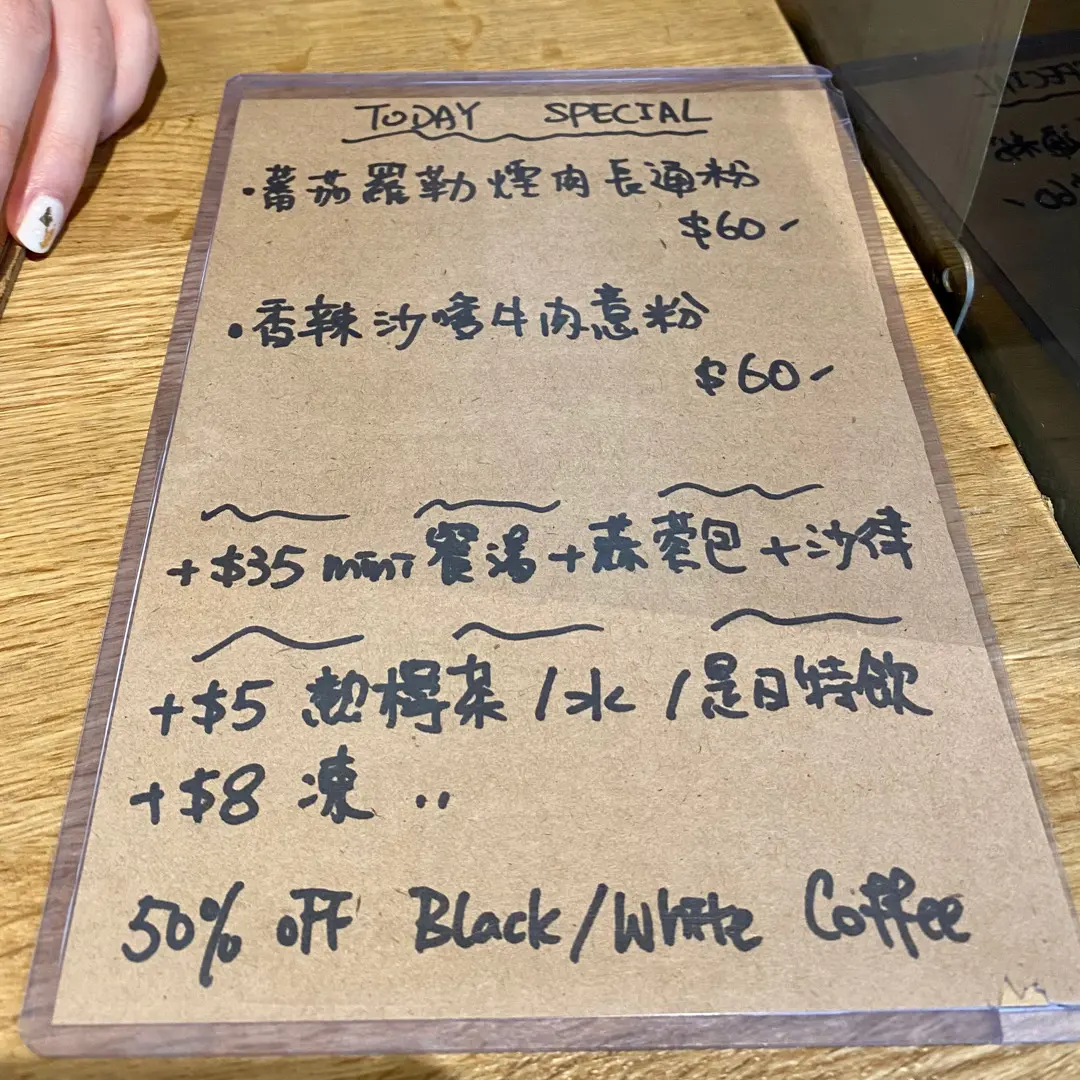 TODAY SPECIAL
·蕃茄羅勒煙肉長通粉
$60-
·香辣沙嗲牛肉意粉
$60-
+$35 mini 餐湯+蒜蓉包+沙律
+$5 熱檸茶/水/是日特飲
+$8 凍 ..
50% OFF Black/White Coffee